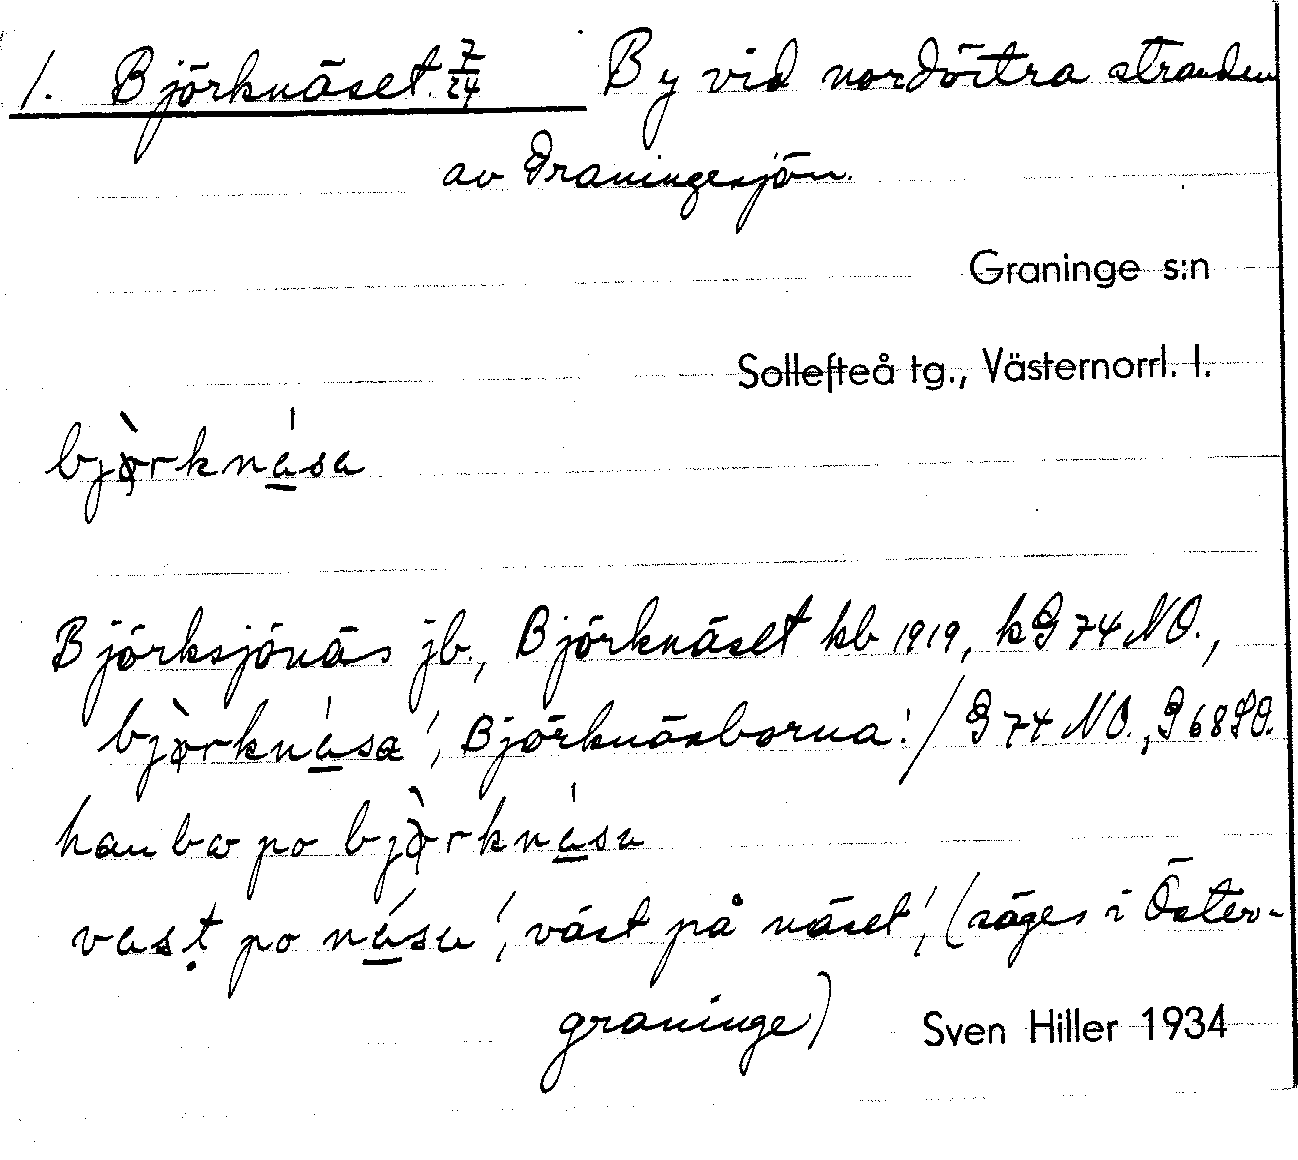 1. Björknäset. 7/24 By vid nordöstra stranden
av Graningesjön.
Graninge s:n
Sollefteå tg., Västernorrl. l.
bjòrknása
Björksjönäs jb., Björknäset kb 1919, kG 74 NO.,
bjòrknása ', Björknäsborna'. / G 74 NO., G 68 SO.
han bor po bjòrknása
vast po nása ', väst på näset', (säges i Öster-
graninge)
Sven Hiller 1934